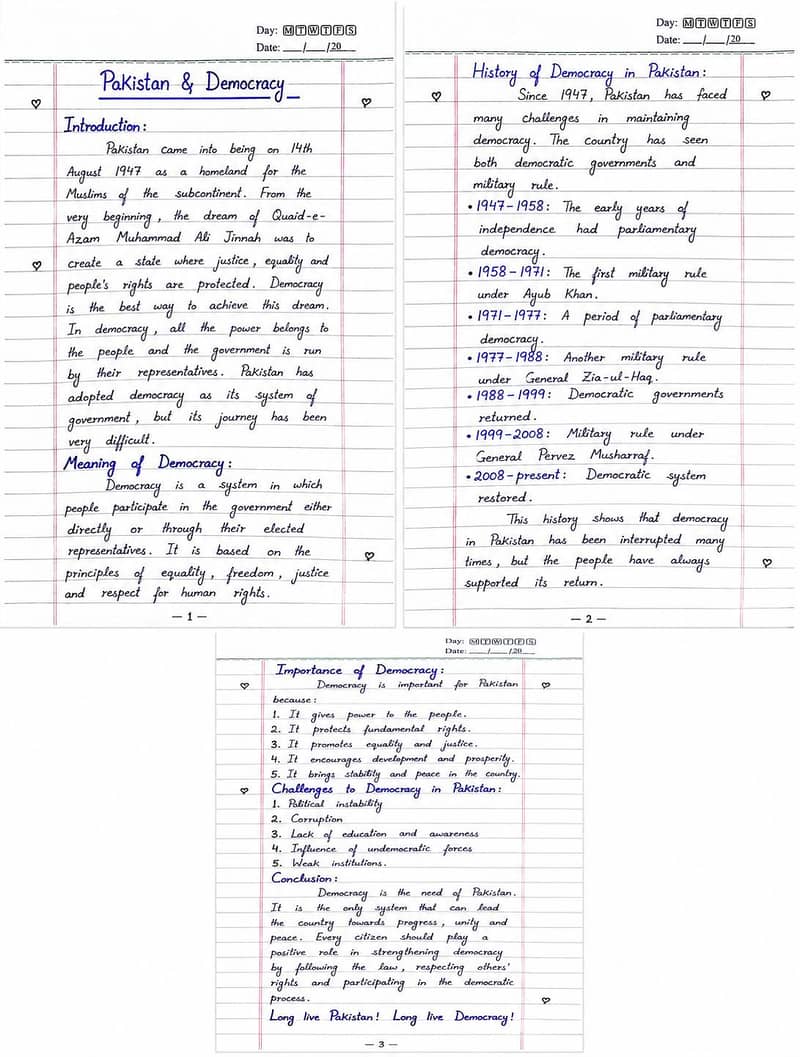 Day: M T W T F S
Date: __/__/20__
Pakistan & Democracy
Introduction:
Pakistan came into being on 14th
August 1947 as a homeland for the
Muslims of the subcontinent. From the
very beginning, the dream of Quaid-e-
Azam Muhammad Ali Jinnah was to
create a state where justice, equality and
people's rights are protected. Democracy
is the best way to achieve this dream.
In democracy, all the power belongs to
the people and the government is run
by their representatives. Pakistan has
adopted democracy as its system of
government, but its journey has been
very difficult.
Meaning of Democracy:
Democracy is a system in which
people participate in the government either
directly or through their elected
representatives. It is based on the
principles of equality, freedom, justice
and respect for human rights.
— 1 —
Day: M T W T F S
Date: __/__/20__
History of Democracy in Pakistan:
Since 1947, Pakistan has faced
many challenges in maintaining
democracy. The country has seen
both democratic governments and
military rule.
• 1947-1958: The early years of
independence had parliamentary
democracy.
• 1958-1971: The first military rule
under Ayub Khan.
• 1971-1977: A period of parliamentary
democracy.
• 1977-1988: Another military rule
under General Zia-ul-Haq.
• 1988-1999: Democratic governments
returned.
• 1999-2008: Military rule under
General Pervez Musharraf.
• 2008-present: Democratic system
restored.
This history shows that democracy
in Pakistan has been interrupted many
times, but the people have always
supported its return.
— 2 —
Day: M T W T F S
Date: __/__/20__
Importance of Democracy:
Democracy is important for Pakistan
because:
1. It gives power to the people.
2. It protects fundamental rights.
3. It promotes equality and justice.
4. It encourages development and prosperity.
5. It brings stability and peace in the country.
Challenges to Democracy in Pakistan:
1. Political instability
2. Corruption
3. Lack of education and awareness
4. Influence of undemocratic forces
5. Weak institutions.
Conclusion:
Democracy is the need of Pakistan.
It is the only system that can lead
the country towards progress, unity and
peace. Every citizen should play a
positive role in strengthening democracy
by following the law, respecting others'
rights and participating in the democratic
process.
Long live Pakistan! Long live Democracy!
— 3 —